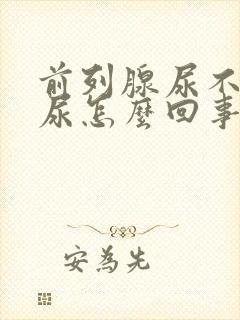 前列腺尿不
尿怎麼回事
安為先